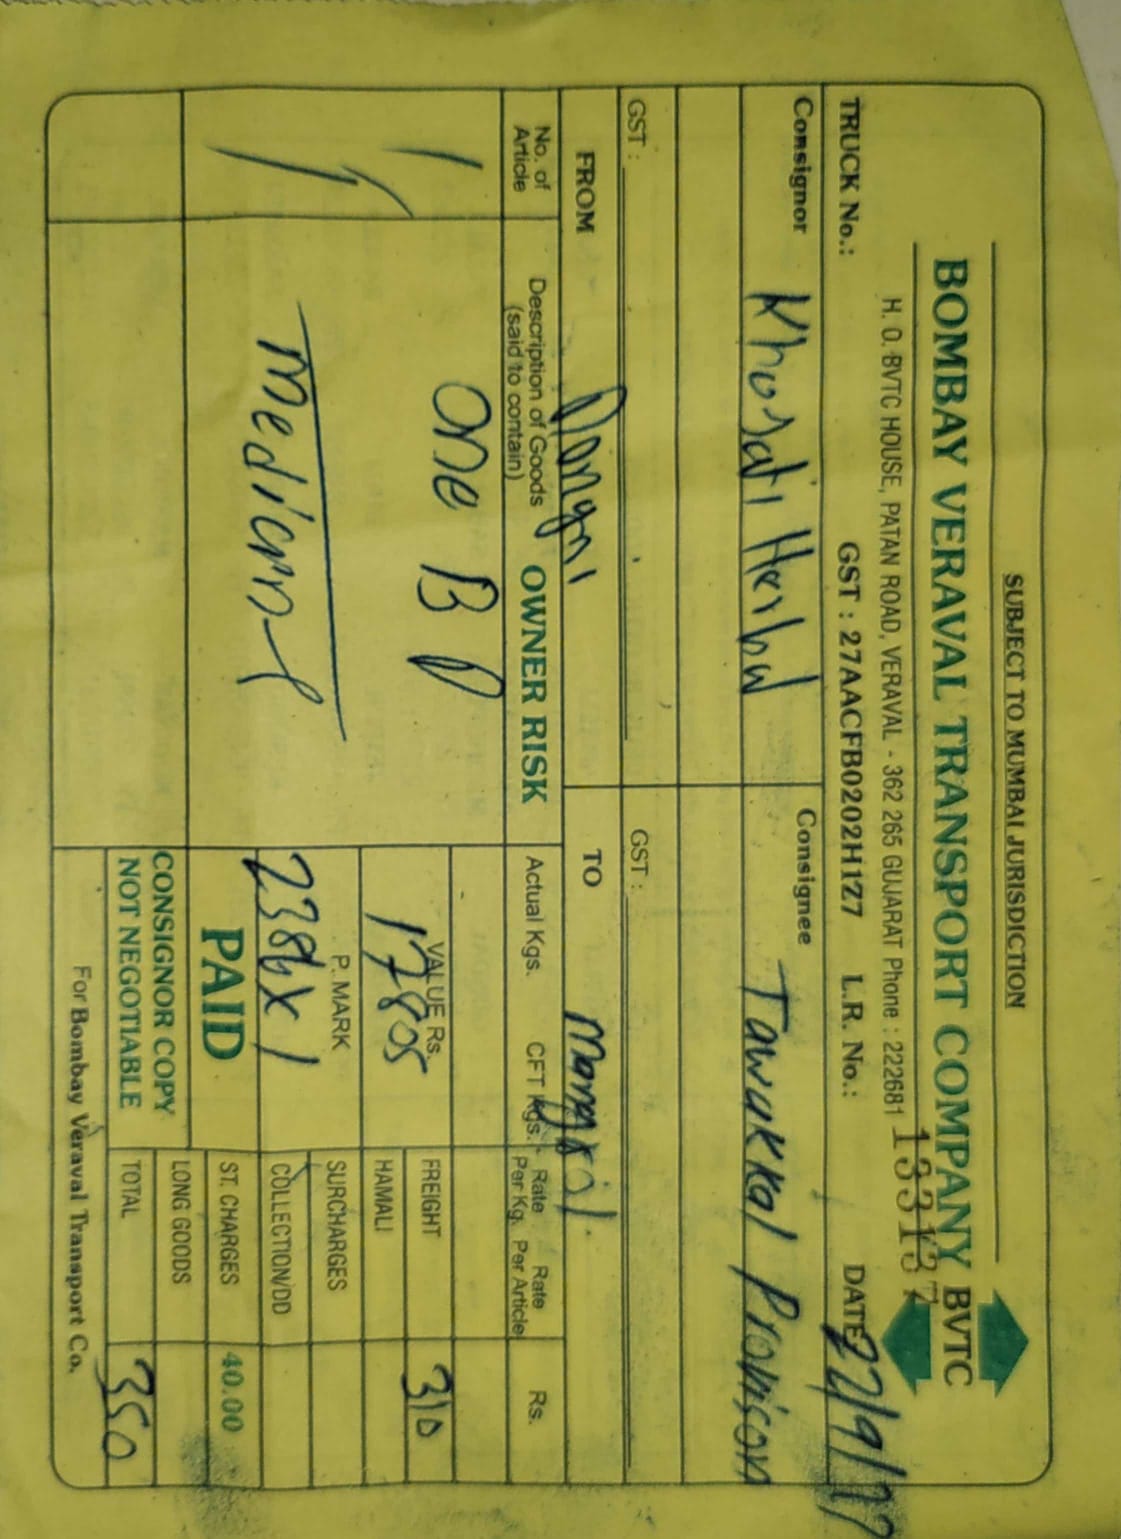 SUBJECT TO MUMBAI JURISDICTION
BOMBAY VERAVAL TRANSPORT COMPANY BVTC
H. O. BVTC HOUSE, PATAN ROAD, VERAVAL - 362 265 GUJARAT Phone : 222681
133137
TRUCK No.: GST : 27AACFB0202H1Z7 L.R. No.: DATE 22/9/
Consignor Khojati Herbal Consignee Tawukkal Provison
GST : GST :
FROM Dongri TO Mangrol
No. of Article Description of Goods (said to contain) OWNER RISK Actual Kgs. CFT Kgs. Rate Per Kg. Rate Per Article Rs.
1 one B
VALUE Rs. 17805 FREIGHT 310
HAMALI
P.MARK SURCHARGES
Medicine 238bx1 COLLECTION/DD
PAID ST. CHARGES 40.00
CONSIGNOR COPY LONG GOODS
NOT NEGOTIABLE TOTAL 350
For Bombay Veraval Transport Co.